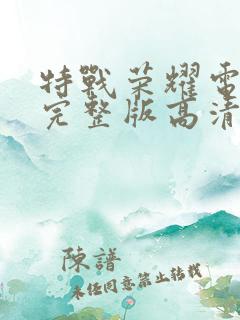 特戰荣耀雷
完整版高清
陳譜
未经同意禁止转载